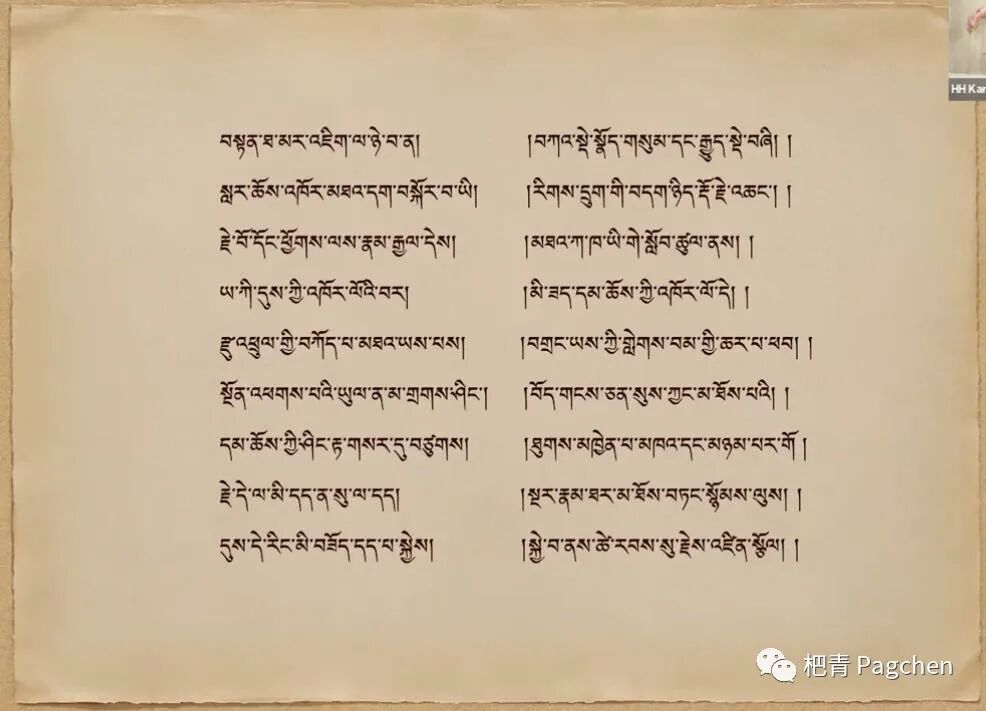 HH Kar
བསྟན་ཐ་མར་འཇིག་ལ་ཉེ་བ་ན། །བཀའ་སྡེ་སྣོད་གསུམ་དང་རྒྱུད་སྡེ་བཞི། །
སླར་ཆོས་འཁོར་མཐའ་དག་བསྐོར་བ་ཡི། །རིགས་དྲུག་གི་བདག་ཉིད་རྡོ་རྗེ་འཆང་། །
རྗེ་བོ་དོང་ཕྱོགས་ལས་རྣམ་རྒྱལ་དེས། །མཐའ་ཀ་ཁ་ཡི་གེ་སློབ་ཚུལ་ནས། །
ཡ་ཀི་དུས་ཀྱི་འཁོར་ལོའི་བར། །མི་ཟད་དམ་ཆོས་ཀྱི་འཁོར་ལོ་དེ། །
རྫུ་འཕྲུལ་གྱི་བཀོད་པ་མཐའ་ཡས་པས། །བགྲང་ཡས་ཀྱི་གླེགས་བམ་གྱི་ཆར་པ་ཕབ། །
སྔོན་འཕགས་པའི་ཡུལ་ན་མ་གྲགས་ཤིང་། །བོད་གངས་ཅན་སུས་ཀྱང་མ་ཐོས་པའི། །
དམ་ཆོས་ཀྱི་ཤིང་རྟ་གསར་དུ་བཙུགས། །ཐུགས་མཁྱེན་པ་མཁའ་དང་མཉམ་པར་གོ །
རྗེ་དེ་ལ་མི་དད་ན་སུ་ལ་དད། །སྔར་རྣམ་ཐར་མ་ཐོས་བཏང་སྙོམས་ལུས། །
དུས་དེ་རིང་མི་བཟོད་དད་པ་སྐྱེས། །སྐྱེ་བ་ནས་ཚེ་རབས་སུ་རྗེས་འཛིན་སྩོལ། །
杷青 Pagchen